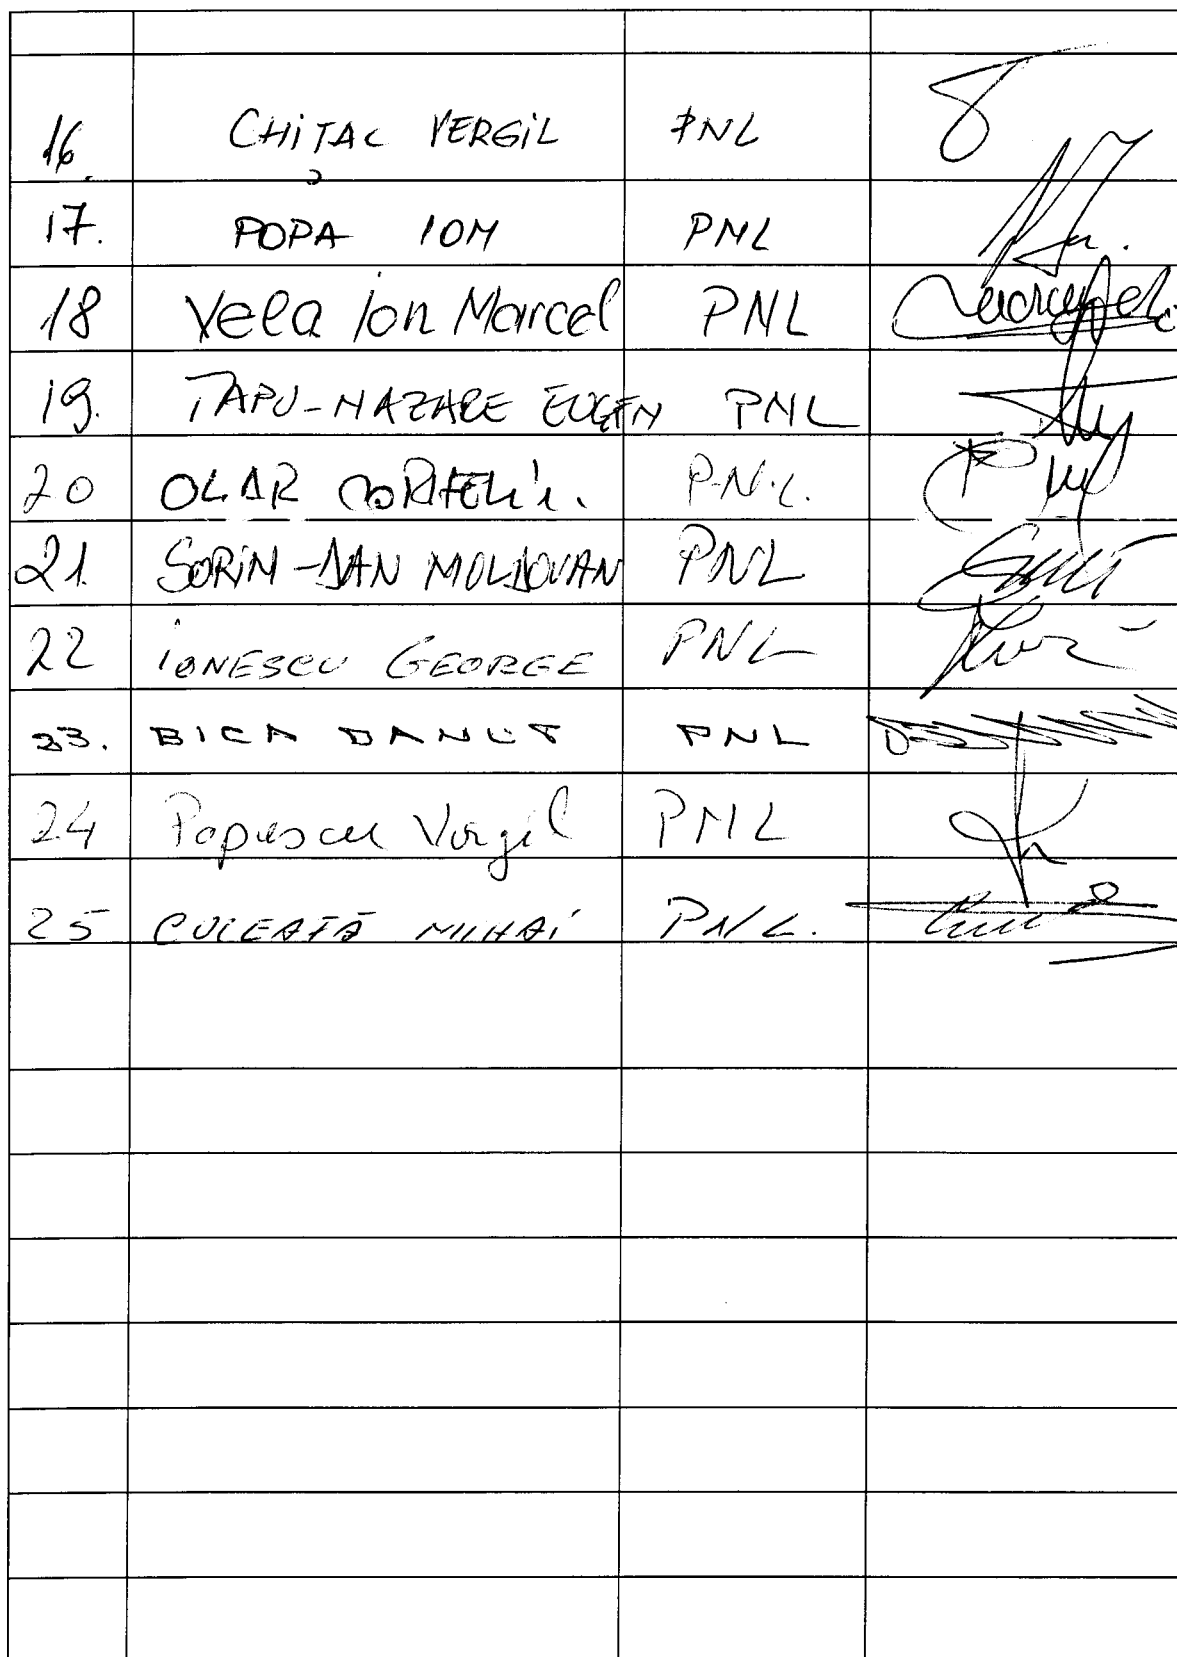 16. CHIȚAC VERGIL PNL
17. POPA ION PNL
18 Vela Ion Marcel PNL
19. TAPU-NAZARE EUGEN PNL
20 OLAR CORNELIU. P.N.L.
21. SORIN-DAN MOLDOVAN PNL
22 IONESCU GEORGE PNL
23. BICA DANUT PNL
24 Popescu Virgil PNL
25 CULEAFĂ MIHAI PNL.